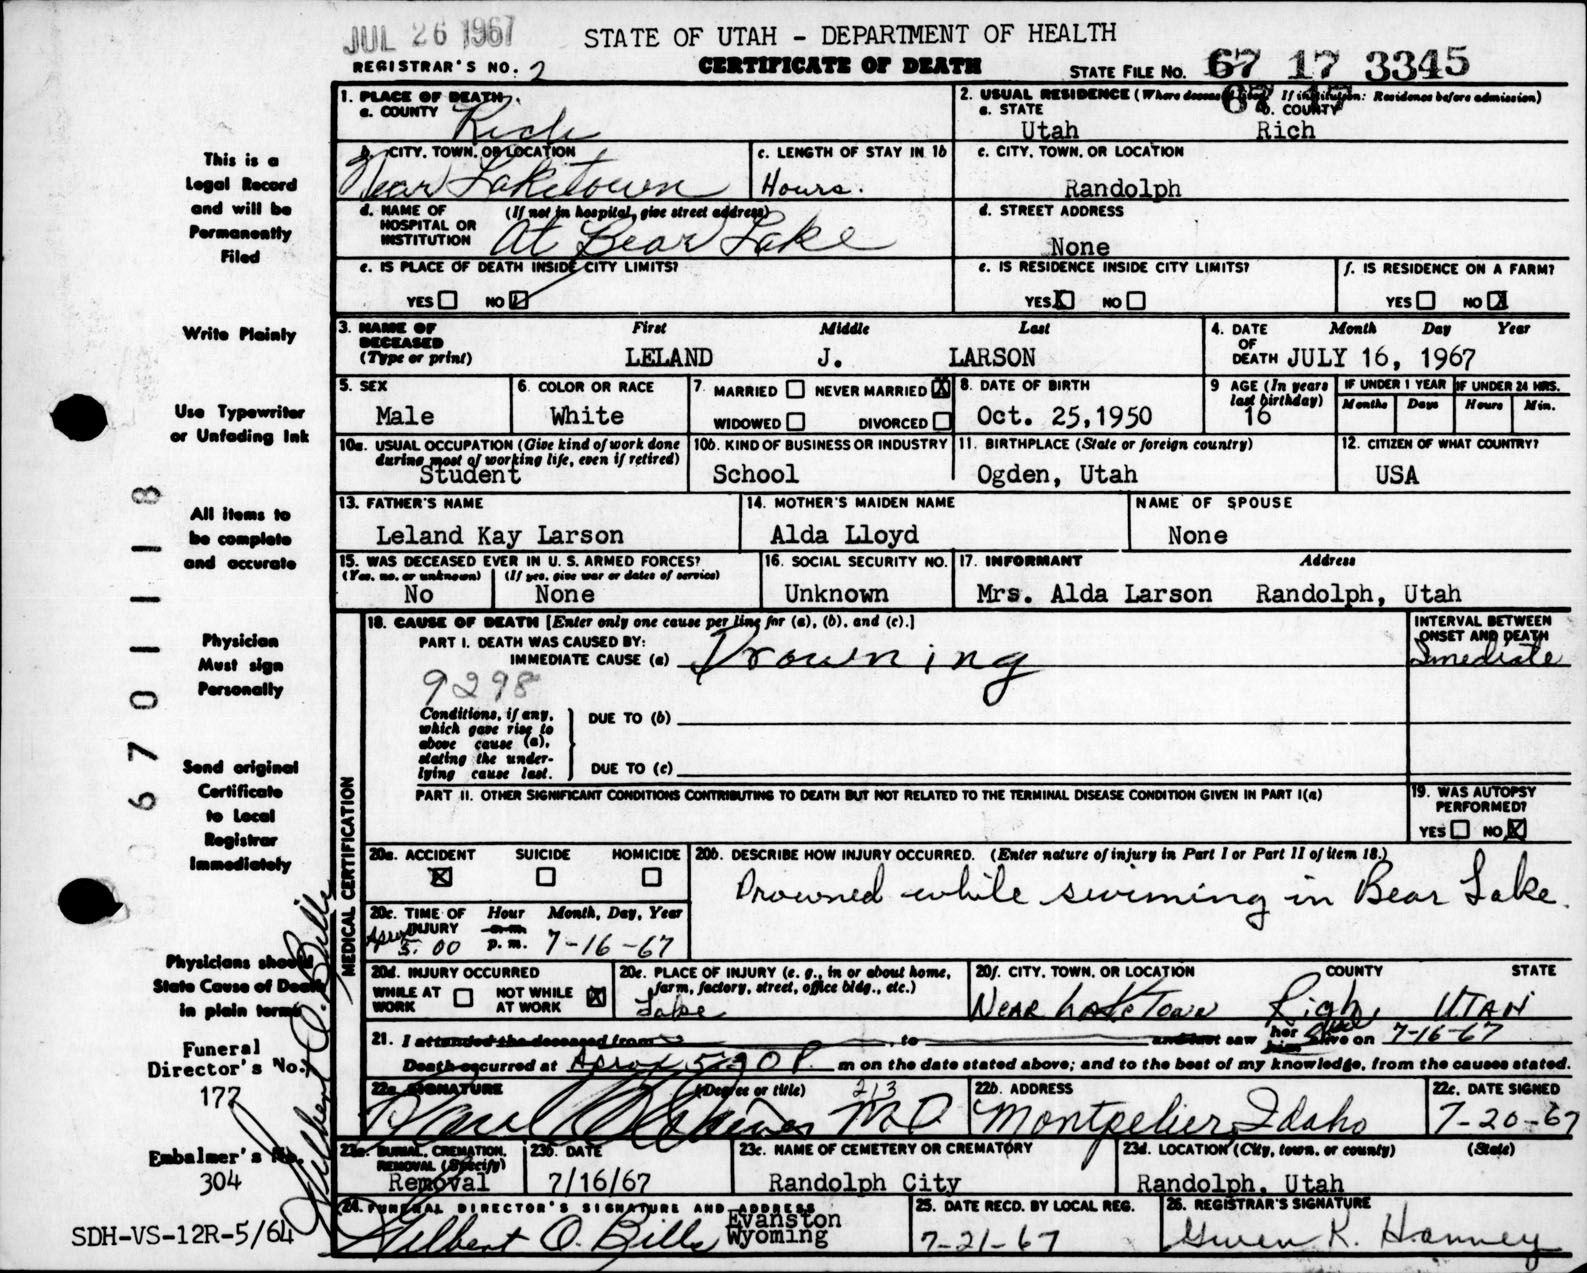 JUL 26 1967
STATE OF UTAH - DEPARTMENT OF HEALTH
REGISTRAR'S NO. 2
CERTIFICATE OF DEATH
STATE FILE NO. 67 17 3345
67 17
1. PLACE OF DEATH
a. COUNTY Rich
2. USUAL RESIDENCE (Where deceased lived. If institution: Residence before admission)
a. STATE Utah
b. COUNTY Rich
b. CITY, TOWN, OR LOCATION Near Laketown
c. LENGTH OF STAY IN 1b Hours.
c. CITY, TOWN, OR LOCATION
Randolph
d. NAME OF HOSPITAL OR INSTITUTION (If not in hospital, give street address)
At Bear Lake
d. STREET ADDRESS
None
e. IS PLACE OF DEATH INSIDE CITY LIMITS?
YES NO
e. IS RESIDENCE INSIDE CITY LIMITS?
YES X NO
f. IS RESIDENCE ON A FARM?
YES NO X
3. NAME OF DECEASED (Type or print)
First Middle Last
LELAND J. LARSON
4. DATE OF DEATH Month Day Year
JULY 16, 1967
5. SEX
Male
6. COLOR OR RACE
White
7. MARRIED NEVER MARRIED X
WIDOWED DIVORCED
8. DATE OF BIRTH
Oct. 25,1950
9 AGE (In years last birthday)
16
IF UNDER 1 YEAR
Months Days
IF UNDER 24 HRS.
Hours Min.
10a. USUAL OCCUPATION (Give kind of work done during most of working life, even if retired)
Student
10b. KIND OF BUSINESS OR INDUSTRY
School
11. BIRTHPLACE (State or foreign country)
Ogden, Utah
12. CITIZEN OF WHAT COUNTRY?
USA
13. FATHER'S NAME
Leland Kay Larson
14. MOTHER'S MAIDEN NAME
Alda Lloyd
NAME OF SPOUSE
None
15. WAS DECEASED EVER IN U. S. ARMED FORCES?
(Yes, no, or unknown) (If yes, give war or dates of service)
No None
16. SOCIAL SECURITY NO.
Unknown
17. INFORMANT Address
Mrs. Alda Larson Randolph, Utah
18. CAUSE OF DEATH [Enter only one cause per line for (a), (b), and (c).]
PART I. DEATH WAS CAUSED BY:
IMMEDIATE CAUSE (a) Drowning
INTERVAL BETWEEN ONSET AND DEATH
Imediate
9298
Conditions, if any, which gave rise to above cause (a), stating the underlying cause last.
DUE TO (b)
DUE TO (c)
PART II. OTHER SIGNIFICANT CONDITIONS CONTRIBUTING TO DEATH BUT NOT RELATED TO THE TERMINAL DISEASE CONDITION GIVEN IN PART I(a)
19. WAS AUTOPSY PERFORMED?
YES NO X
MEDICAL CERTIFICATION
20a. ACCIDENT SUICIDE HOMICIDE
X
20b. DESCRIBE HOW INJURY OCCURRED. (Enter nature of injury in Part I or Part II of item 18.)
Drowned while swiming in Bear Lake.
20c. TIME OF INJURY Hour Month, Day, Year
Aprox 5:00 a.m. p.m. 7-16-67
20d. INJURY OCCURRED
WHILE AT WORK NOT WHILE AT WORK X
20e. PLACE OF INJURY (e. g., in or about home, farm, factory, street, office bldg., etc.)
Lake
20f. CITY, TOWN, OR LOCATION COUNTY STATE
Near Laketown Rich UTAH
21. I attended the deceased from to and last saw her him alive on 7-16-67
Death occurred at Aprox 5:20 P. m on the date stated above; and to the best of my knowledge, from the causes stated.
22a. SIGNATURE (Degree or title) 213
M D
22b. ADDRESS
Montpelier, Idaho
22c. DATE SIGNED
7-20-67
23a. BURIAL, CREMATION, REMOVAL (Specify)
Removal
23b. DATE
7/16/67
23c. NAME OF CEMETERY OR CREMATORY
Randolph City
23d. LOCATION (City, town, or county) (State)
Randolph, Utah
24. FUNERAL DIRECTOR'S SIGNATURE AND ADDRESS
Gilbert O. Bills Evanston Wyoming
25. DATE RECD. BY LOCAL REG.
7-21-67
26. REGISTRAR'S SIGNATURE
Gwen K. Hanney
This is a
Legal Record
and will be
Permanently
Filed
Write Plainly
Use Typewriter
or Unfading Ink
All items to
be complete
and accurate
Physician
Must sign
Personally
Send original
Certificate
to Local
Registrar
Immediately
Physicians should
State Cause of Death
in plain terms
Funeral
Director's No.
177
Embalmer's No.
304
Gilbert O. Bills
SDH-VS-12R-5/64